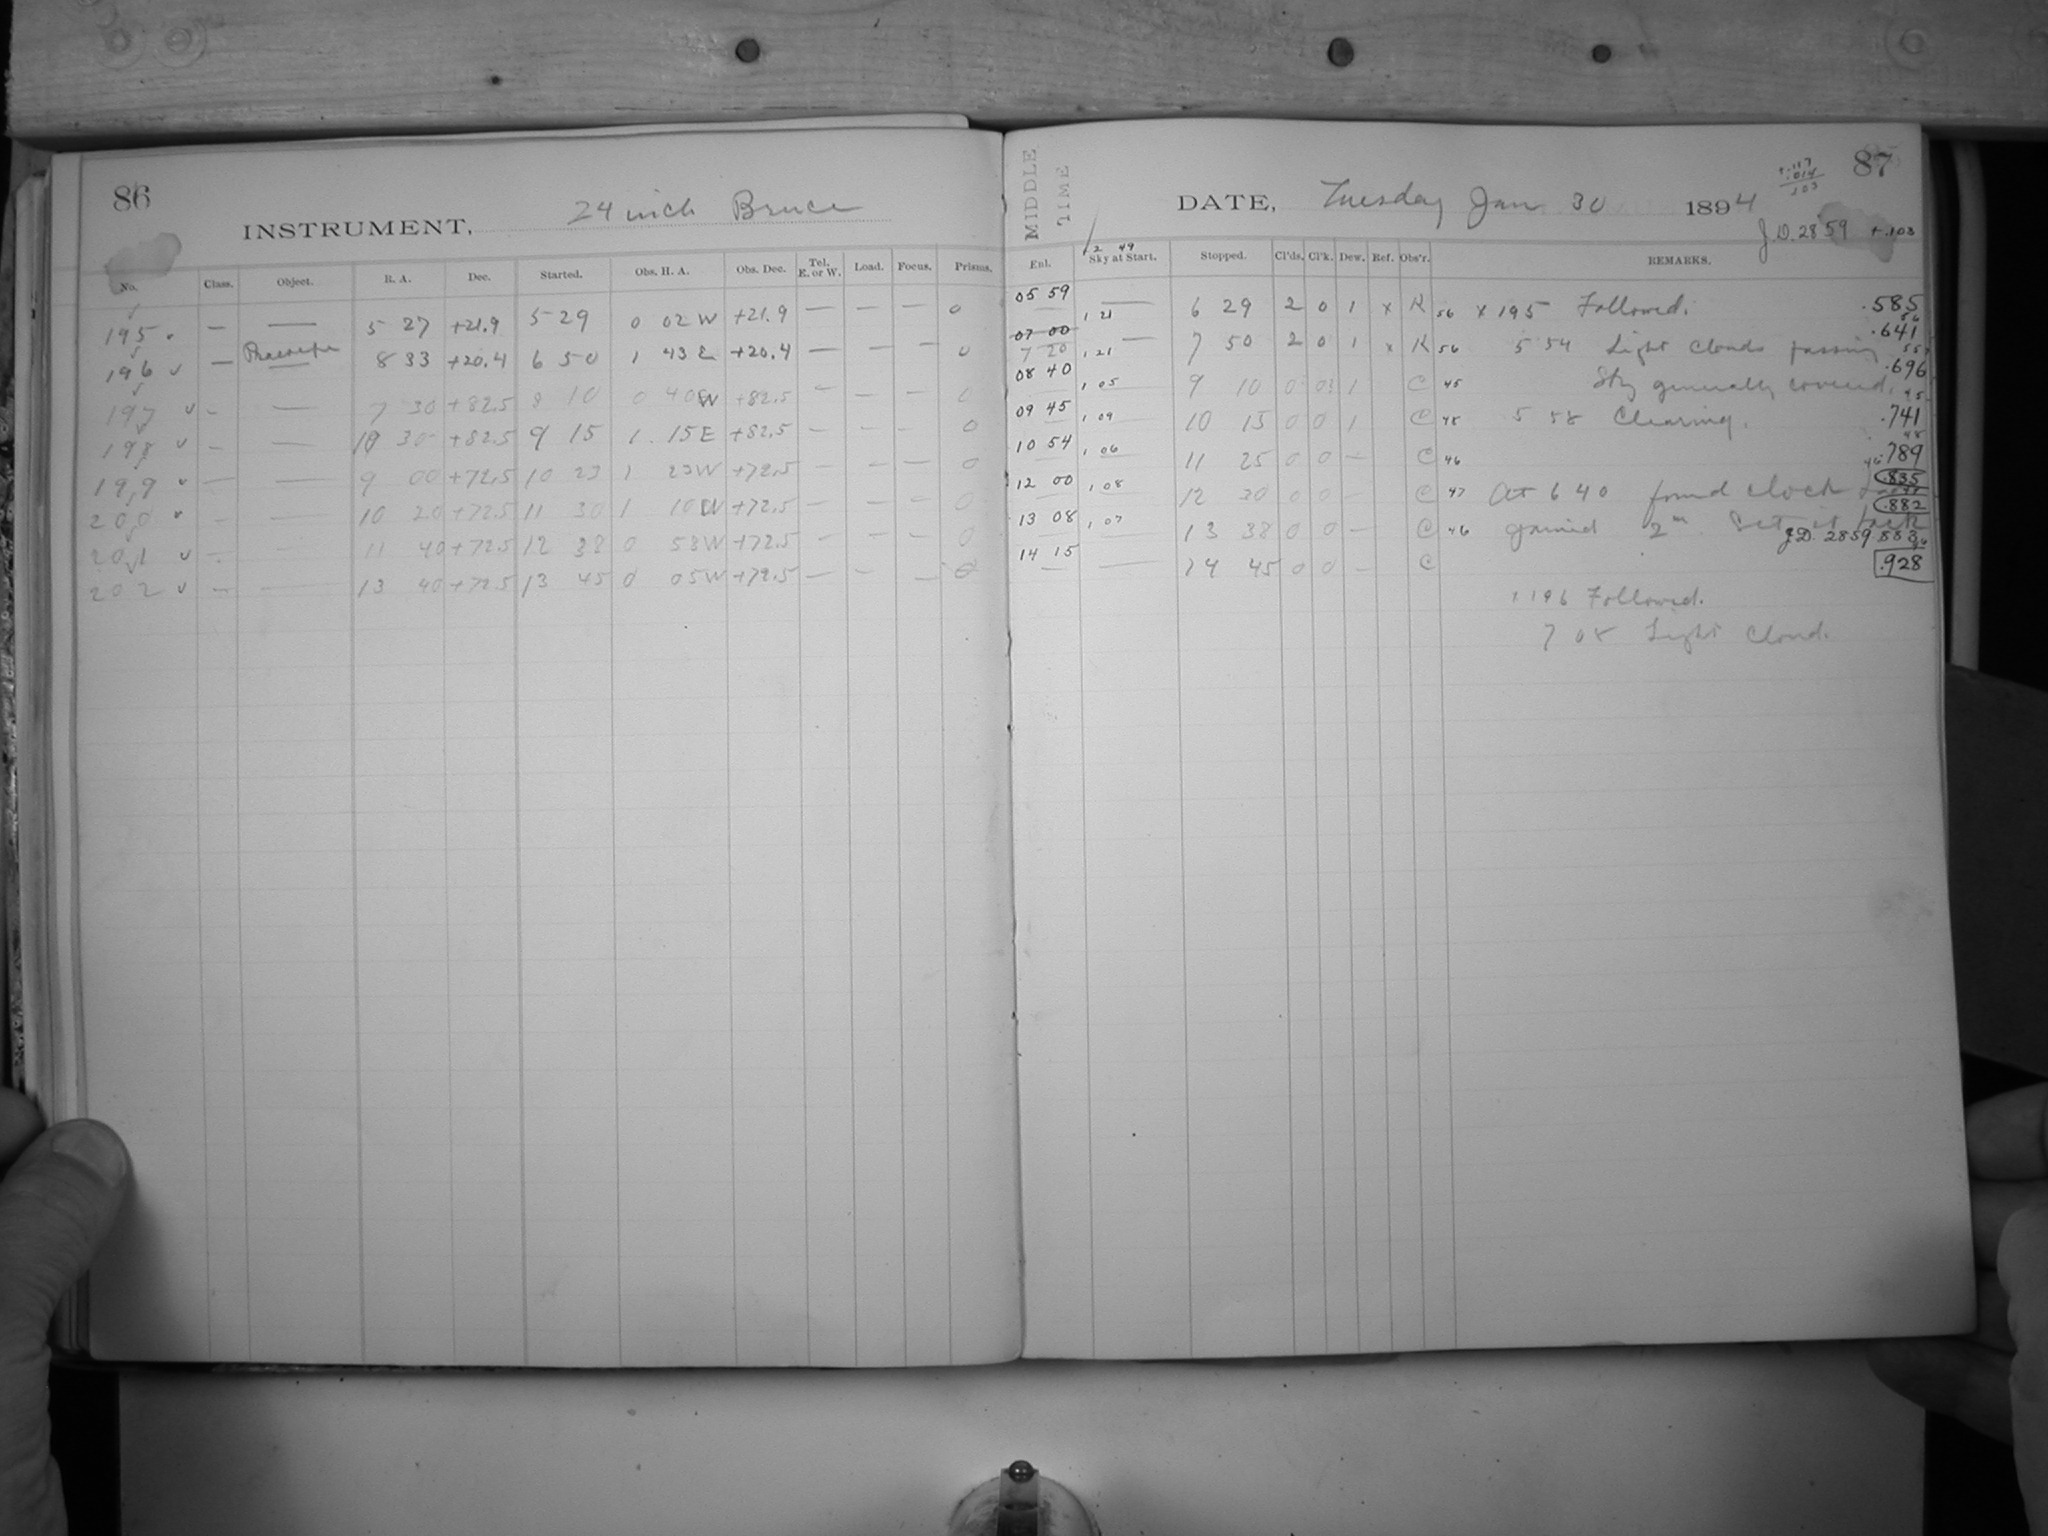 86
INSTRUMENT, 24 inch Bruce
No. Class. Object. R. A. Dec. Started. Obs. H. A. Obs. Dec. Tel. E. or W. Load. Focus. Prisms.
195 — — 5 27 +21.9 5 29 0 02 W +21.9 — — — 0
196 — Praesepe 8 33 +20.4 6 50 1 43 E +20.4 — — — 0
197 — — 7 30 +82.5 8 10 0 40 W +82.5 — — — 0
198 — — 10 30 +82.5 9 15 1 15 E +82.5 — — — 0
199 — — 9 00 +72.5 10 23 1 23 W +72.5 — — — 0
200 — — 10 20 +72.5 11 30 1 10 W +72.5 — — — 0
201 — — 11 40 +72.5 12 38 0 58 W +72.5 — — — 0
202 — — 13 40 +72.5 13 45 0 05 W +72.5 — — — 0
87
MIDDLE TIME
DATE, Tuesday Jan 30 1894
+.117
.014
.103
J.D. 2859 +.103
12 49
Enl. Sky at Start. Stopped. Cl'ds. Cl'k. Dew. Ref. Obs'r. REMARKS.
05 59 — 6 29 2 0 1 x K 56 x 195 Followed. .585
1 21 56
07 00 — .641
7 20 1 21 7 50 2 0 1 x K 56 5 54 Light clouds passing 55
08 40 1 05 9 10 0 0 1 C 45 Sky generally covered. .696
45
09 45 1 09 10 15 0 0 1 C 48 5 58 Clearing. .741
48
10 54 1 06 11 25 0 0 — C 46 .789
46 .835
12 00 1 08 12 30 0 0 — C 47 At 6 40 found clock
.882
13 08 1 07 13 38 0 0 — C 46 gained 2m. Set it back
J.D. 2859.883
14 15 — 14 45 0 0 — C .928
x 196 Followed.
7 08 Light Cloud.